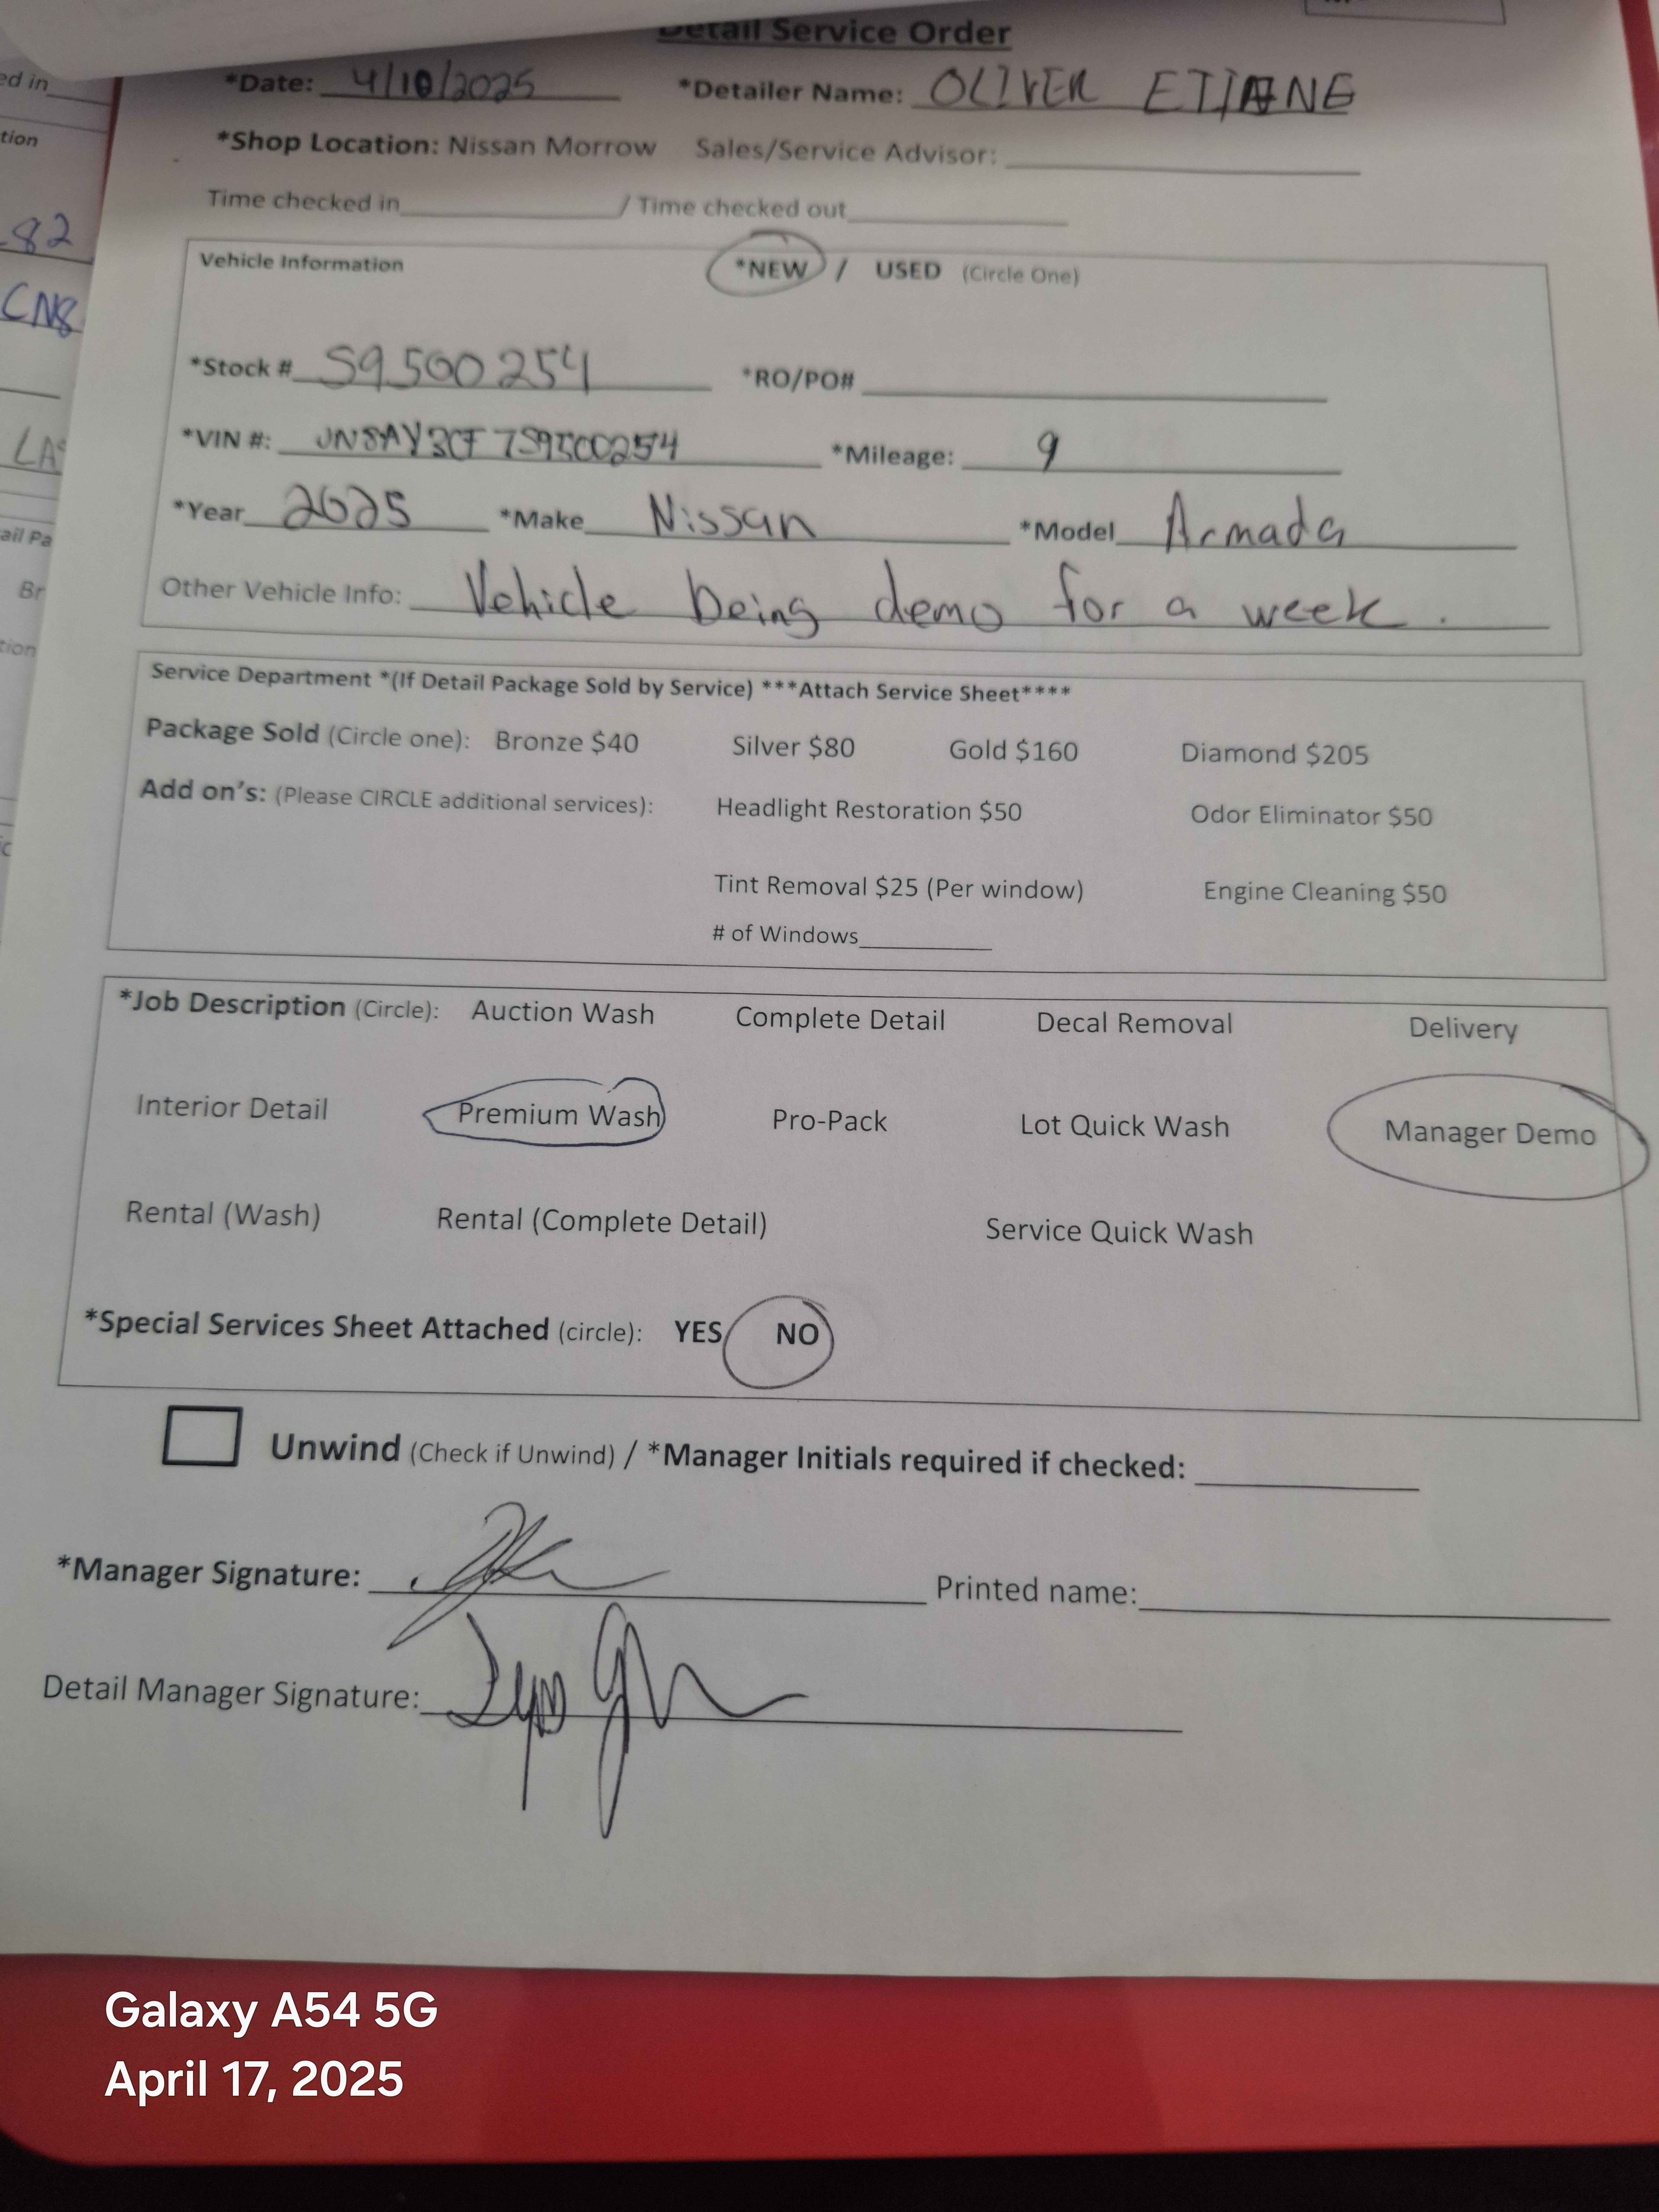 Detail Service Order
*Date: 4/10/2025 *Detailer Name: OLIVER ETIANE
*Shop Location: Nissan Morrow Sales/Service Advisor:
Time checked in / Time checked out
Vehicle Information *NEW / USED (Circle One)
*Stock # S9500254 *RO/PO#
*VIN #: JN8AY3CF7S9500254 *Mileage: 9
*Year 2025 *Make Nissan *Model Armada
Other Vehicle Info: Vehicle being demo for a week.
Service Department *(If Detail Package Sold by Service) ***Attach Service Sheet****
Package Sold (Circle one): Bronze $40 Silver $80 Gold $160 Diamond $205
Add on's: (Please CIRCLE additional services): Headlight Restoration $50 Odor Eliminator $50
Tint Removal $25 (Per window) Engine Cleaning $50
# of Windows
*Job Description (Circle): Auction Wash Complete Detail Decal Removal Delivery
Interior Detail Premium Wash Pro-Pack Lot Quick Wash Manager Demo
Rental (Wash) Rental (Complete Detail) Service Quick Wash
*Special Services Sheet Attached (circle): YES NO
Unwind (Check if Unwind) / *Manager Initials required if checked:
*Manager Signature: Printed name:
Detail Manager Signature:
82
CN8
LA
Galaxy A54 5G
April 17, 2025